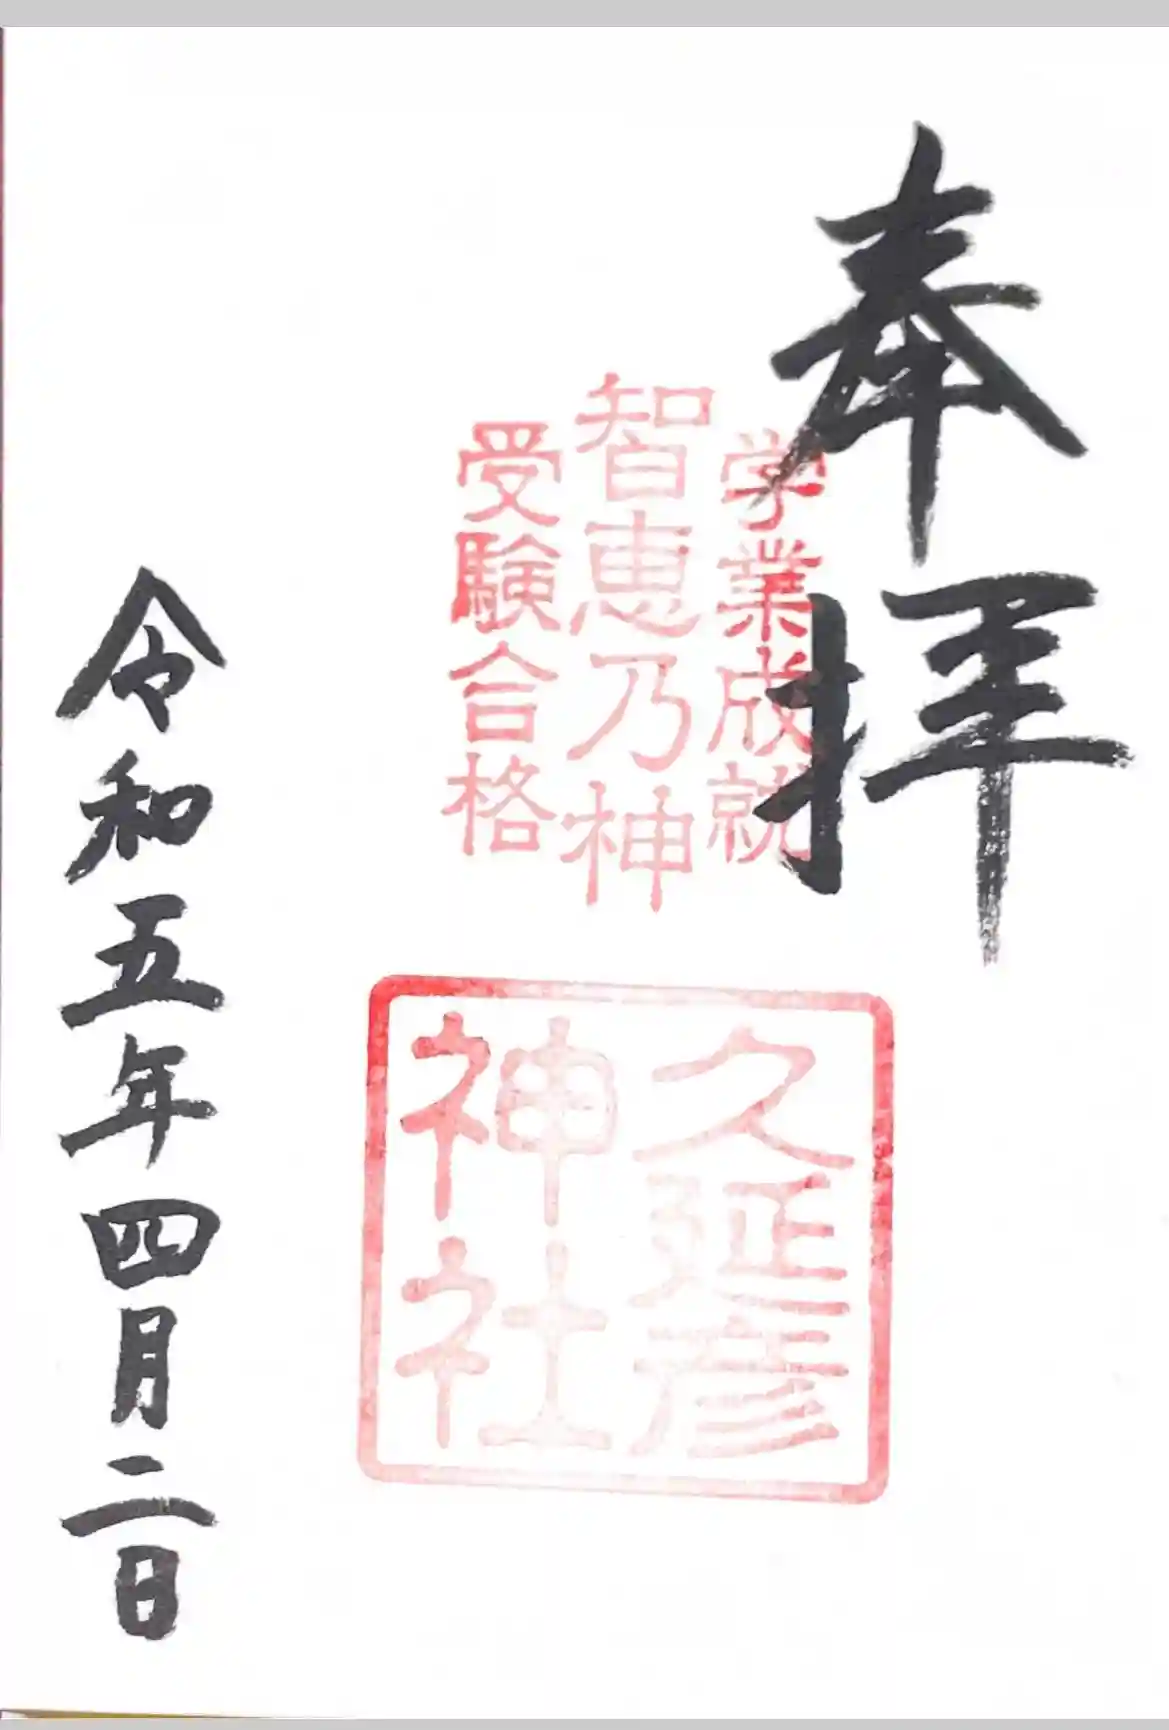 奉拝
学業成就
智恵乃神
受験合格
久延彦
神社
令和五年四月二日